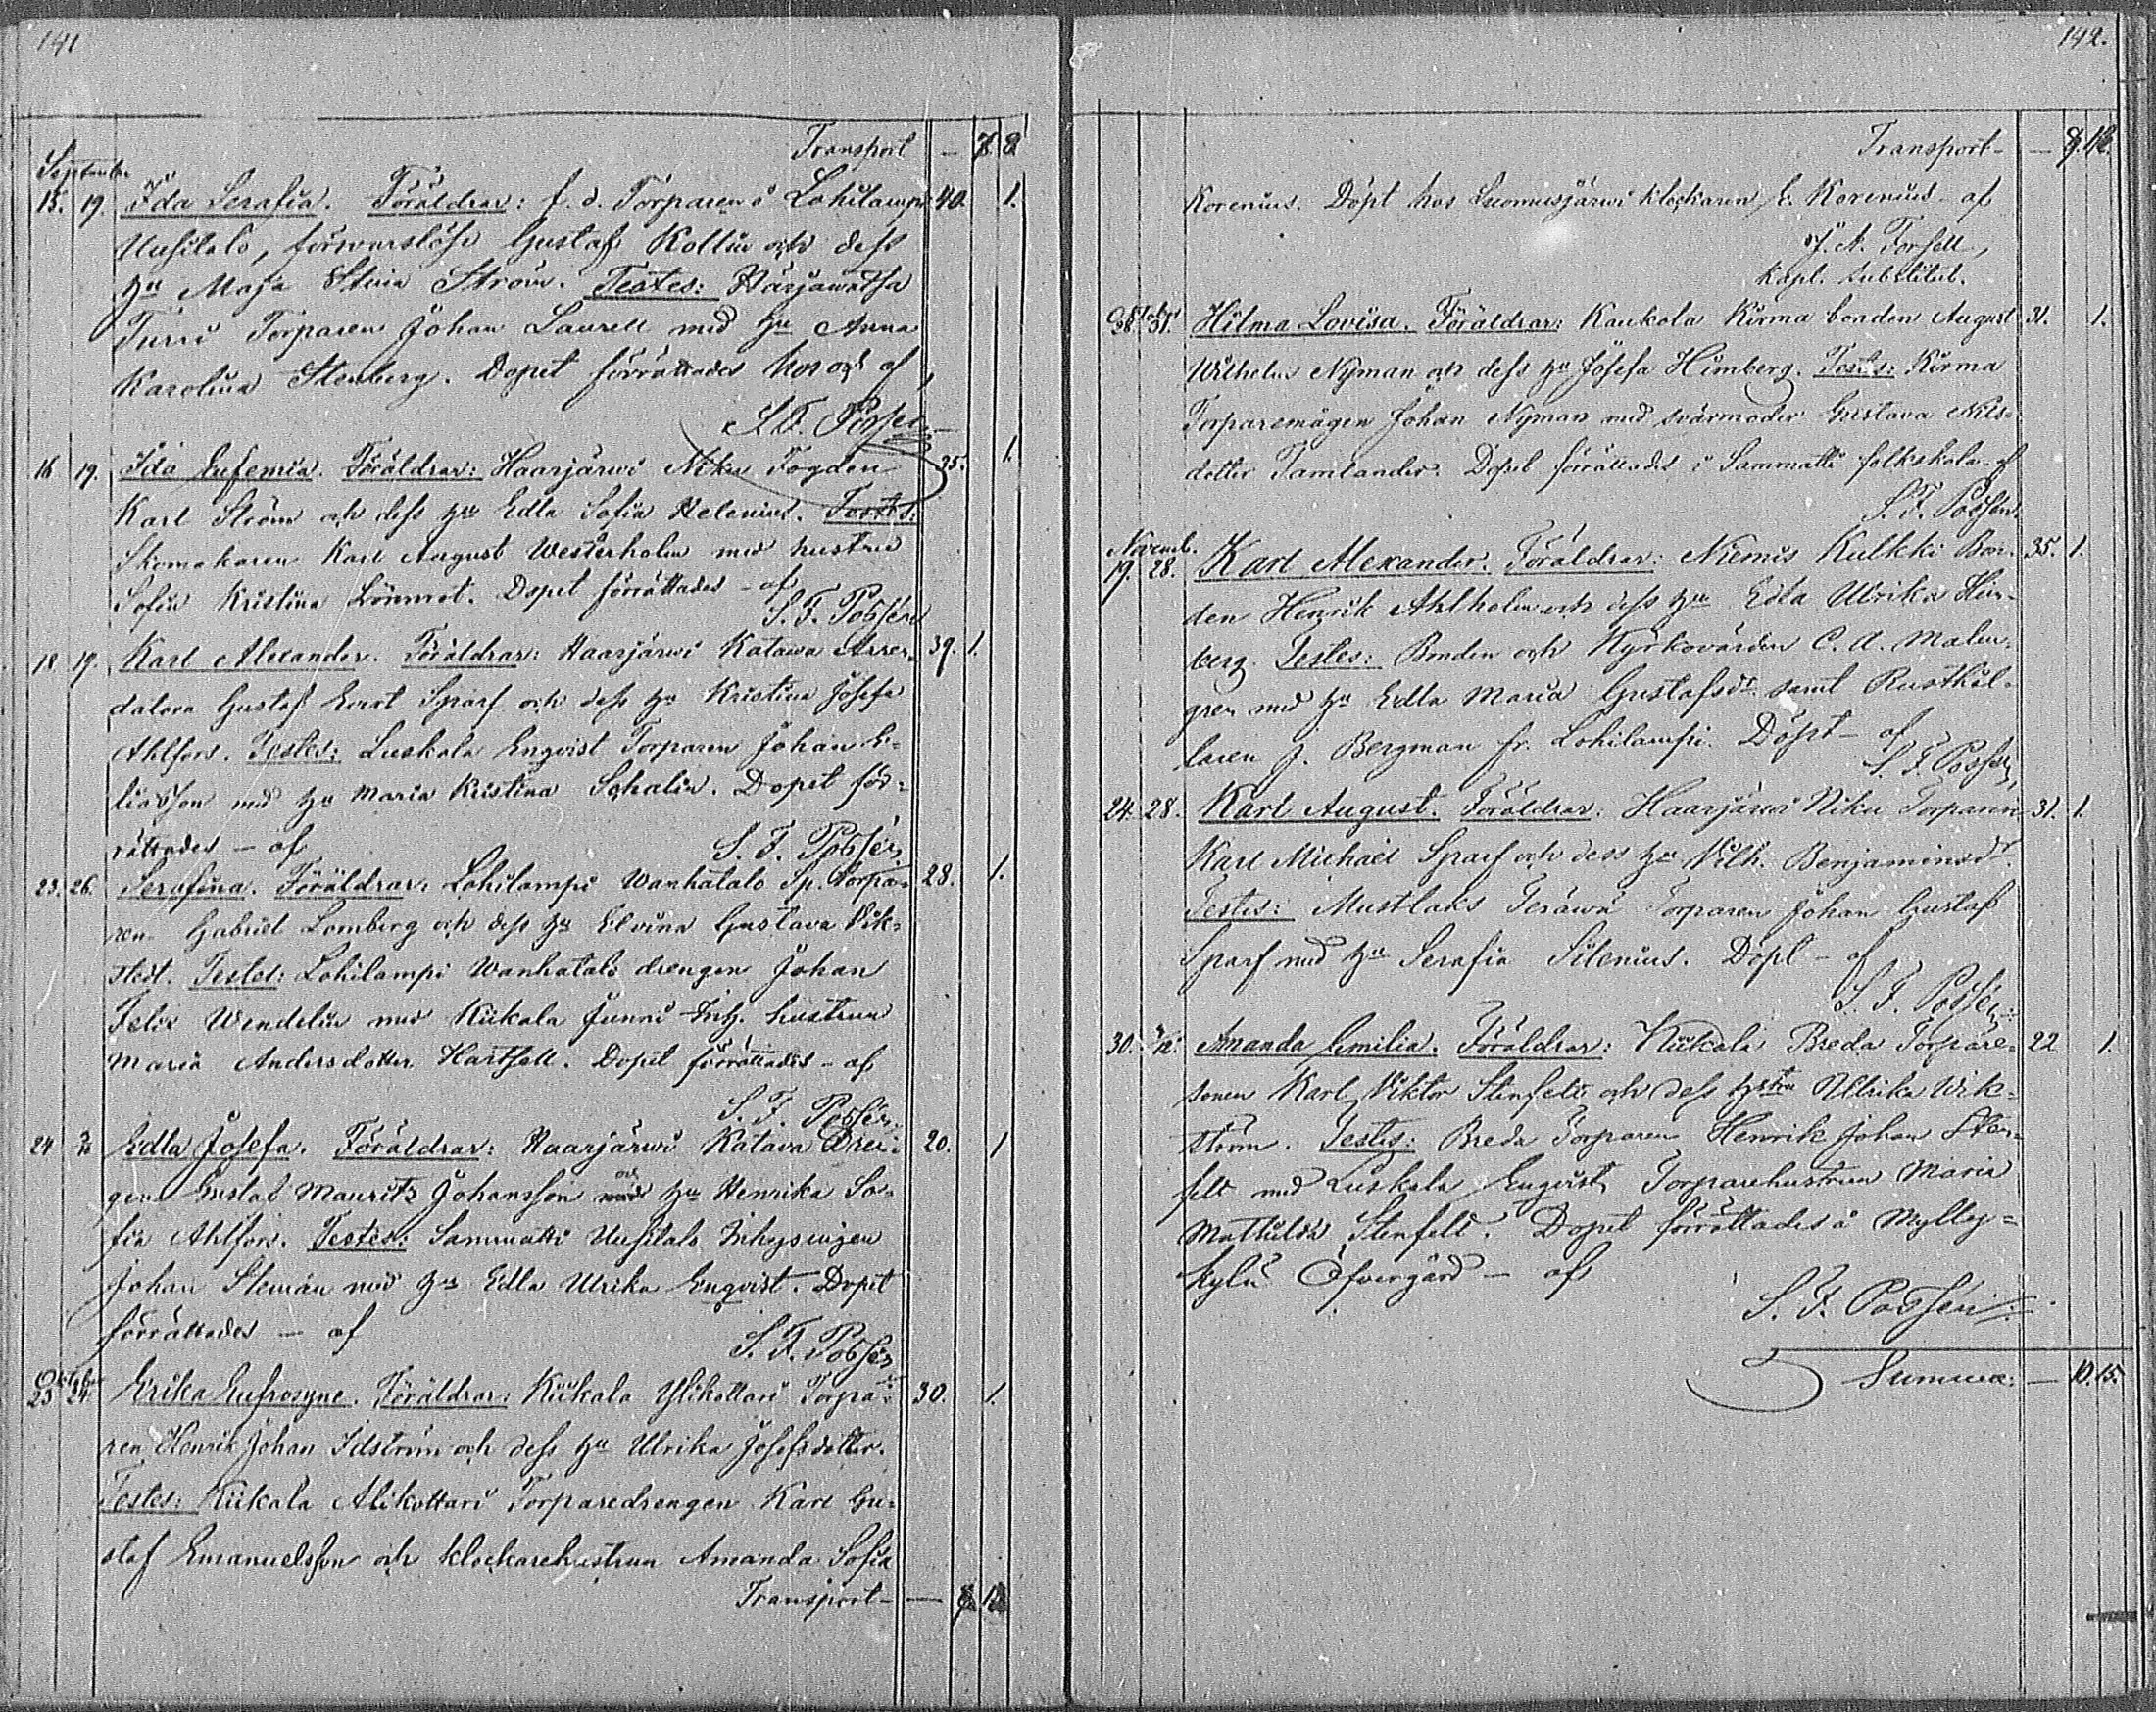 141
Transport — 7. 8.
September
15. 19. Ida Serafia. Föräldrar: f. d. Torparen å Lohilampi 40. 1.
Uusitalo, Gustaf Kollin och dess
hu Maja Stina Ström. Testes: Harjawalta
Turri Torparen Johan Laurell med hu Anna
Karolina Stenberg. Dopet förrättades af
S. F. Possén
16 19. Ida Eufemia. Föräldrar: Haarjärwi Niku Fogden 35. 1.
Karl Ström och dess hu Edla Sofia Helenius. Testes:
Skomakaren Karl August Westerholm med hustru
Sofia Kristina Lönnrot. Dopet förrättades – af
S. F. Possén
18 19. Karl Alexander. Föräldrar: Haarjärwi Katawa Arren- 39. 1.
datorn Gustaf Evert Sparf och dess hu Kristina Josefa
Ahlfors. Testes: Luskala Enqvist Torparen Johan E-
liasson med hu Maria Kristina Schalin. Dopet för-
rättades – af S. F. Possén
23. 26. Serafina. Föräldrar: Lohilampi Wanhatalo Sp. torpa- 28. 1.
ren Gabriel Lomberg och dess hu Elvina Gustava Vik-
stedt. Testes: Lohilampi Wanhatalo drengen Johan
Felix Wendelin med Kiikala Junni Inh. hustrun
Maria Andersdotter Hartsell. Dopet förrättades – af
S. F. Possén
24 Edla Josefa. Föräldrar: Haarjärwi Katava Dren- 20. 1
gen Gustaf Mauritz Johansson och hu Henrika So-
fia Ahlfors. Testes: Sammatti Uusitalo Inhysingen
Johan Stenián med hu Edla Ulrika Enqvist. Dopet
förrättades – af
S. F. Possén
Oktober
23 24. Erika Eufrosyne. Föräldrar: Kiikala Ylikottari Torpa- 30. 1.
ren Henrik Johan Idström och dess hu Ulrika Josefsdotter.
Testes: Kiikala Alikottari Torparedrengen Karl Gu-
staf Emanuelsson och klockarehustrun Amanda Sofia
Transport –
142.
Transport –
Korenius. Döpt hos Suomusjärwi klockaren E. Korenius af
J. A. Forsell,
Kapl. Substitut.
Oktober
28. 31. Hilma Lovisa. Föräldrar: Kaukola Kirma bonden August 31. 1.
Wilhelm Nyman och dess hu Josefa Himberg. Testes: Kirma
Torparemågen Johan Nyman med svärmoder Gustava Nils-
dotter Tamlander. Dopet förrättades i Sammatti folkskola – af
S. F. Possén
Novemb.
19. 28. Karl Alexander. Föräldrar: Niemis Kulkki Bon- 35. 1.
den Henrik Ahlholm och dess hu Edla Ulrika Him-
berg. Testes: Bonden och Kyrkovärden C. A. Malm-
gren med hu Edla Maria Gustafsdr. samt Rusthål-
laren J. Bergman fr. Lohilampi. Döpt – af
S. F. Possén
24. 28. Karl August. Föräldrar: Haarjärwi Niku Torparen 31. 1.
Karl Michael Sparf och dess hu Vilh. Benjaminsdr.
Testes: Mustlaks Teräwä Torparen Johan Gustaf
Sparf med hu Serafia Silenius. Döpt – af
S. F. Possén
30. Amanda Emilia. Föräldrar: Kiikala Breda Torpare- 22 1.
sonen Karl Viktor Stenfelt och dess hstru Ulrika Wik-
ström. Testes: Breda Torparen Henrik Johan Sten-
felt med Luskala Enqvist Torparehustrun Maria
Mathilda Stenfelt. Dopet förrättades å Mylly-
kylä Öfvergård – af
S. F. Possén
Summa: — 10. 15.